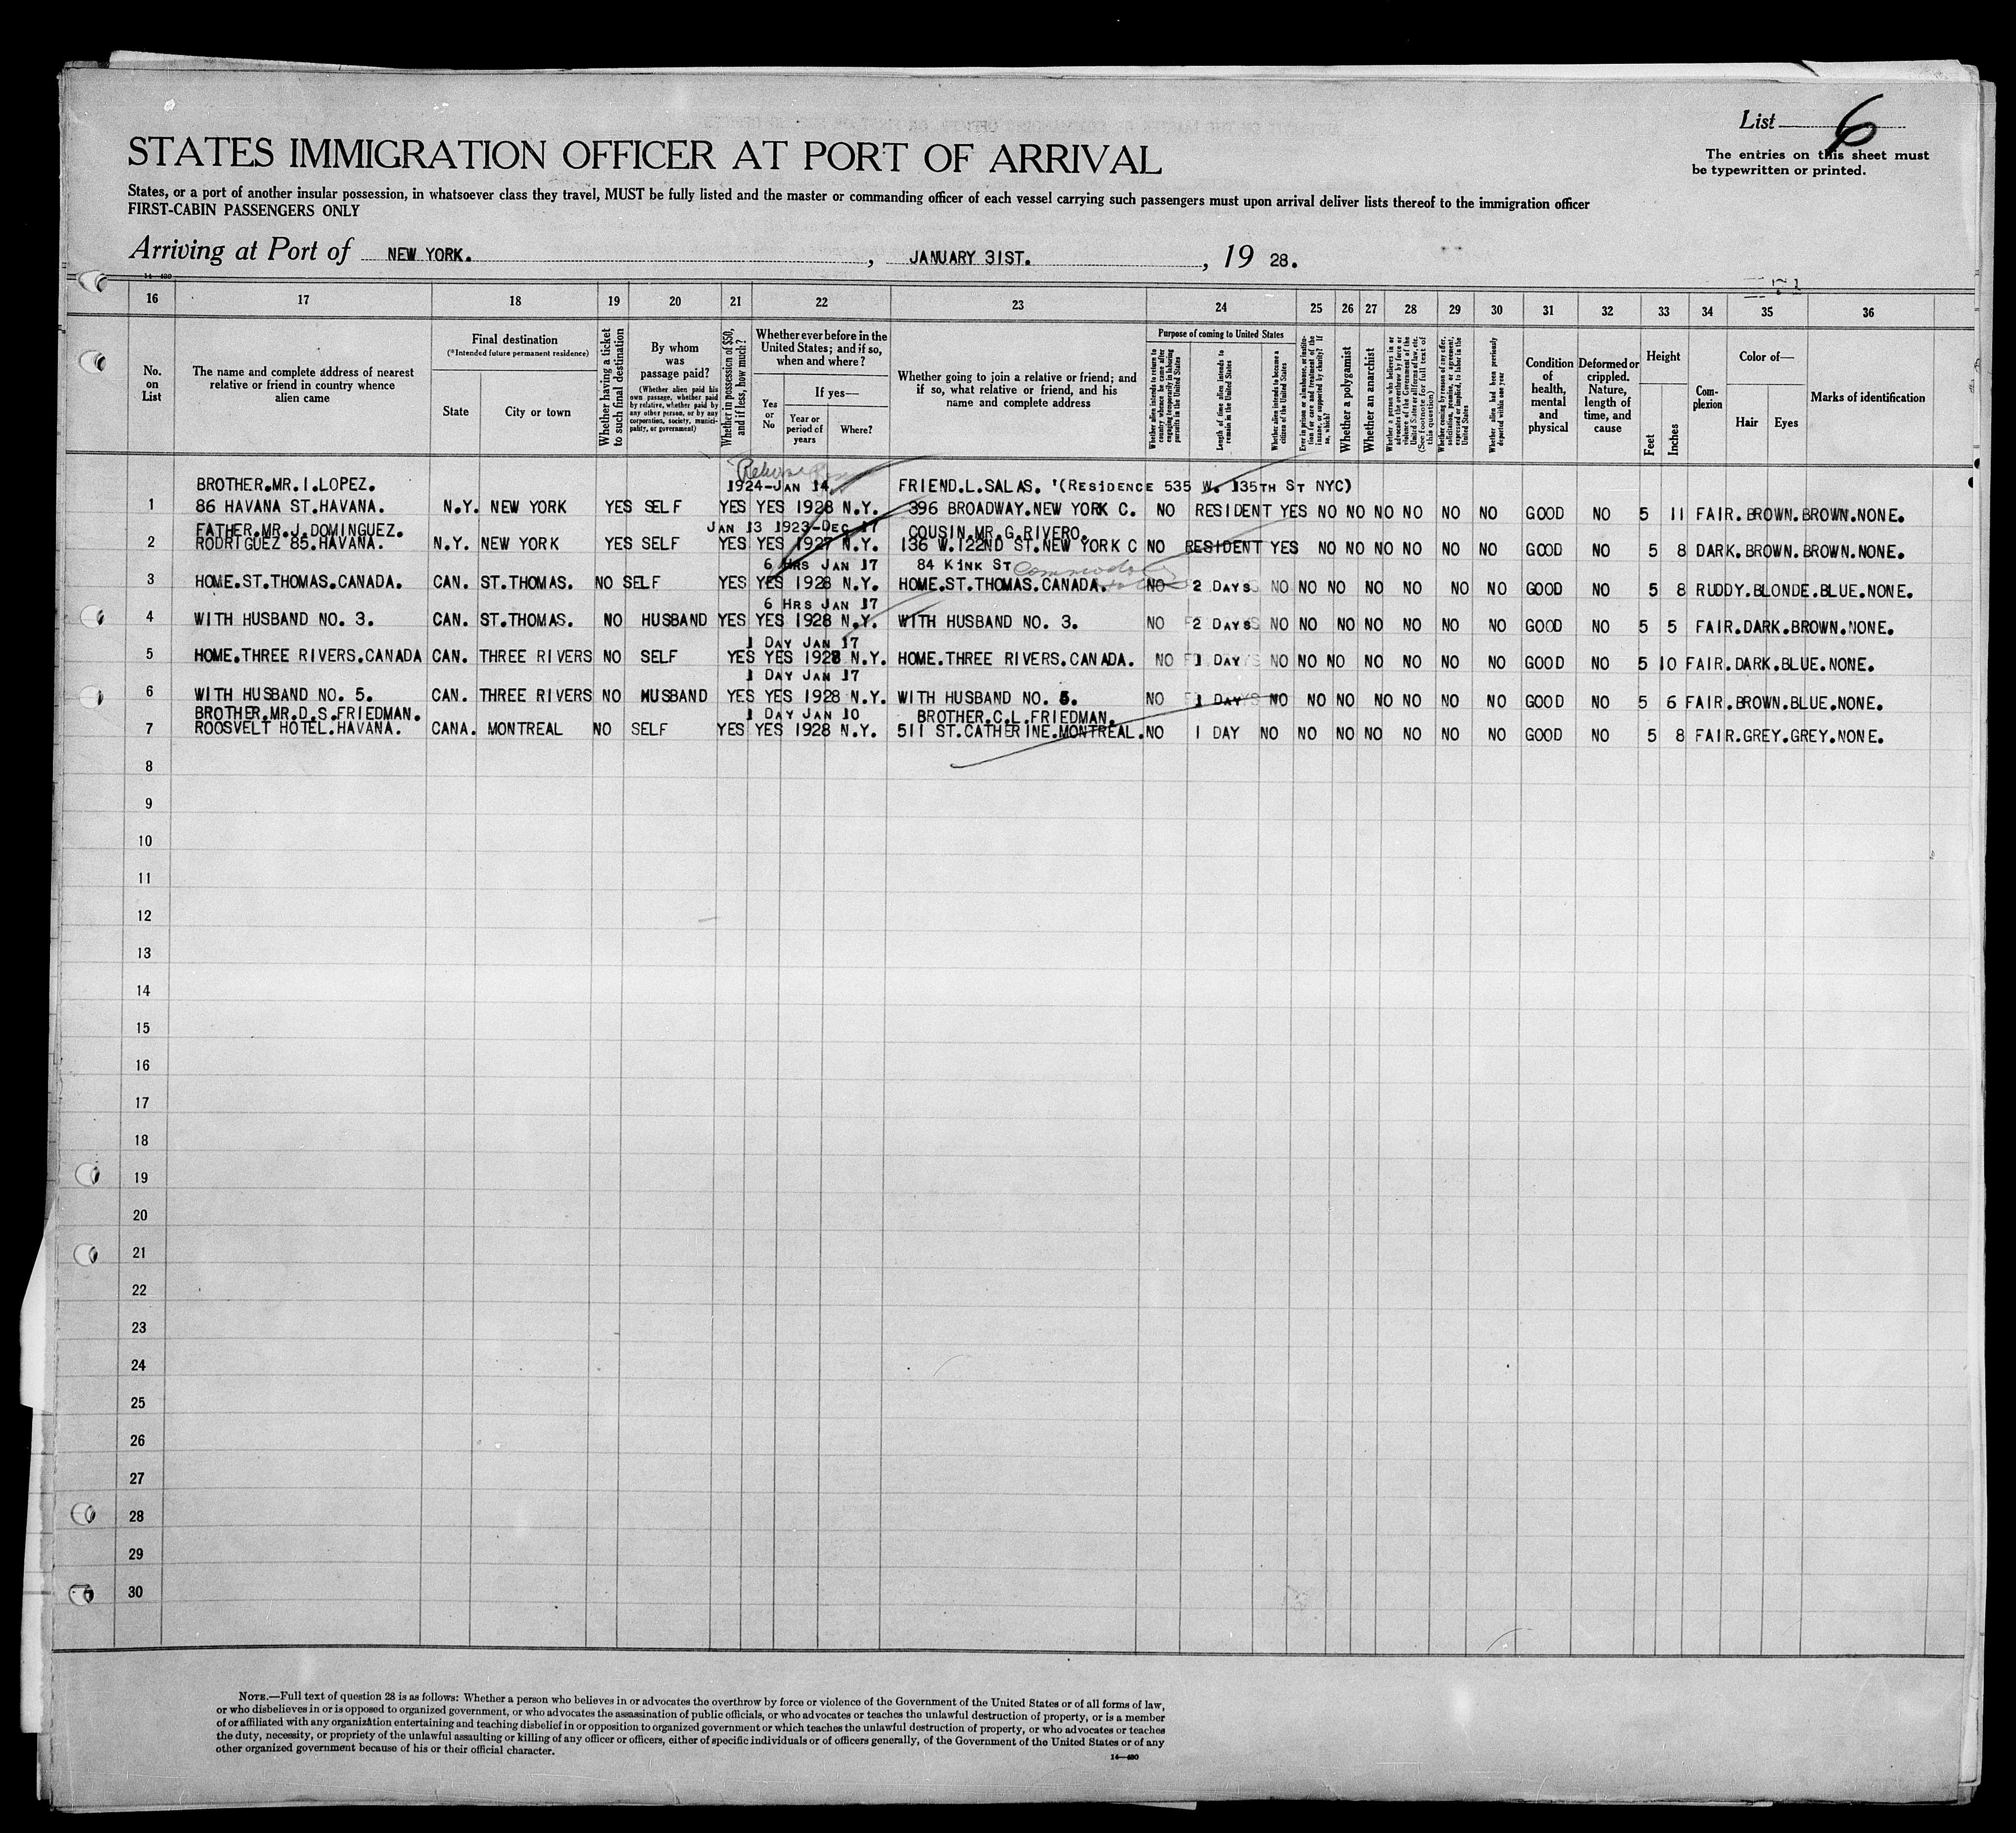 List 6
The entries on this sheet must
be typewritten or printed.
STATES IMMIGRATION OFFICER AT PORT OF ARRIVAL
States, or a port of another insular possession, in whatsoever class they travel, MUST be fully listed and the master or commanding officer of each vessel carrying such passengers must upon arrival deliver lists thereof to the immigration officer
FIRST-CABIN PASSENGERS ONLY
Arriving at Port of NEW YORK. , JANUARY 31ST. , 19 28.
14-480
16 17 18 19 20 21 22 23 24 25 26 27 28 29 30 31 32 33 34 35 36
No. on List
The name and complete address of nearest relative or friend in country whence alien came
Final destination
(*Intended future permanent residence)
State
City or town
Whether having a ticket to such final destination
By whom was passage paid?
(Whether alien paid his own passage, whether paid by relative, whether paid by any other person, or by any corporation, society, municipality, or government)
Whether in possession of $50, and if less, how much?
Whether ever before in the United States; and if so, when and where?
Yes or No
If yes—
Year or period of years
Where?
Whether going to join a relative or friend; and if so, what relative or friend, and his name and complete address
Purpose of coming to United States
Whether alien intends to return to country whence he came after engaging temporarily in laboring pursuits in the United States
Length of time alien intends to remain in the United States
Whether alien intends to become a citizen of the United States
Ever in prison or almshouse, or institution for care and treatment of the insane, or supported by charity? If so, which?
Whether a polygamist
Whether an anarchist
Whether a person who believes in or advocates the overthrow by force or violence of the Government of the United States or all forms of law, etc. (See footnote for full text of this question)
Whether coming by reason of any offer, solicitation, promise, or agreement, expressed or implied, to labor in the United States
Whether alien had been previously deported within one year
Condition of health, mental and physical
Deformed or crippled. Nature, length of time, and cause
Height
Feet
Inches
Complexion
Color of—
Hair
Eyes
Marks of identification
BROTHER.MR.I.LOPEZ. 1924-JAN 14 FRIEND.L.SALAS. (RESIDENCE 535 W. 135TH ST NYC)
1 86 HAVANA ST.HAVANA. N.Y. NEW YORK YES SELF YES YES 1928 N.Y. 396 BROADWAY.NEW YORK C. NO RESIDENT YES NO NO NO NO NO NO GOOD NO 5 11 FAIR.BROWN.BROWN.NONE.
FATHER.MR.J.DOMINGUEZ. JAN 13 1923-DEC 17 COUSIN.MR.G.RIVERO.
2 RODRIGUEZ 85.HAVANA. N.Y. NEW YORK YES SELF YES YES 1927 N.Y. 136 W.122ND ST.NEW YORK C NO RESIDENT YES NO NO NO NO NO NO GOOD NO 5 8 DARK.BROWN.BROWN.NONE.
6 HRS JAN 17 84 KINK ST Commodore
3 HOME.ST.THOMAS.CANADA. CAN. ST.THOMAS. NO SELF YES YES 1928 N.Y. HOME.ST.THOMAS.CANADA. NO 2 DAYS NO NO NO NO NO NO NO GOOD NO 5 8 RUDDY.BLONDE.BLUE.NONE.
6 HRS JAN 17
4 WITH HUSBAND NO. 3. CAN. ST.THOMAS. NO HUSBAND YES YES 1928 N.Y. WITH HUSBAND NO. 3. NO 2 DAYS NO NO NO NO NO NO NO GOOD NO 5 5 FAIR.DARK.BROWN.NONE.
1 DAY JAN 17
5 HOME.THREE RIVERS.CANADA CAN. THREE RIVERS NO SELF YES YES 1928 N.Y. HOME.THREE RIVERS.CANADA. NO 1 DAY NO NO NO NO NO NO NO GOOD NO 5 10 FAIR.DARK.BLUE.NONE.
1 DAY JAN 17
6 WITH HUSBAND NO. 5. CAN. THREE RIVERS NO HUSBAND YES YES 1928 N.Y. WITH HUSBAND NO. 5. NO 1 DAY NO NO NO NO NO NO NO GOOD NO 5 6 FAIR.BROWN.BLUE.NONE.
BROTHER.MR.D.S.FRIEDMAN. 1 DAY JAN 10 BROTHER.C.L.FRIEDMAN.
7 ROOSVELT HOTEL.HAVANA. CANA. MONTREAL NO SELF YES YES 1928 N.Y. 511 ST.CATHERINE.MONTREAL. NO 1 DAY NO NO NO NO NO NO NO GOOD NO 5 8 FAIR.GREY.GREY.NONE.
8
9
10
11
12
13
14
15
16
17
18
19
20
21
22
23
24
25
26
27
28
29
30
NOTE.—Full text of question 28 is as follows: Whether a person who believes in or advocates the overthrow by force or violence of the Government of the United States or of all forms of law,
or who disbelieves in or is opposed to organized government, or who advocates the assassination of public officials, or who advocates or teaches the unlawful destruction of property, or is a member
of or affiliated with any organization entertaining and teaching disbelief in or opposition to organized government or which teaches the unlawful destruction of property, or who advocates or teaches
the duty, necessity, or propriety of the unlawful assaulting or killing of any officer or officers, either of specific individuals or of officers generally, of the Government of the United States or of any
other organized government because of his or their official character.
14—480